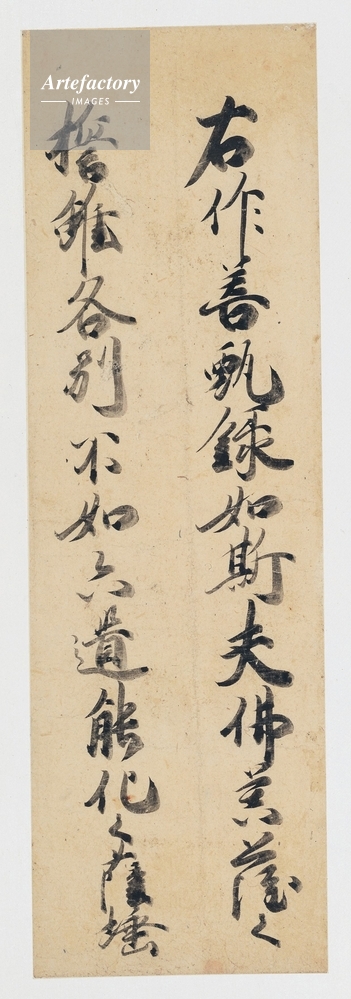 右作善甄録如斯夫佛菩薩之
誓雖各別不如六道能化之薩埵
Artefactory
IMAGES